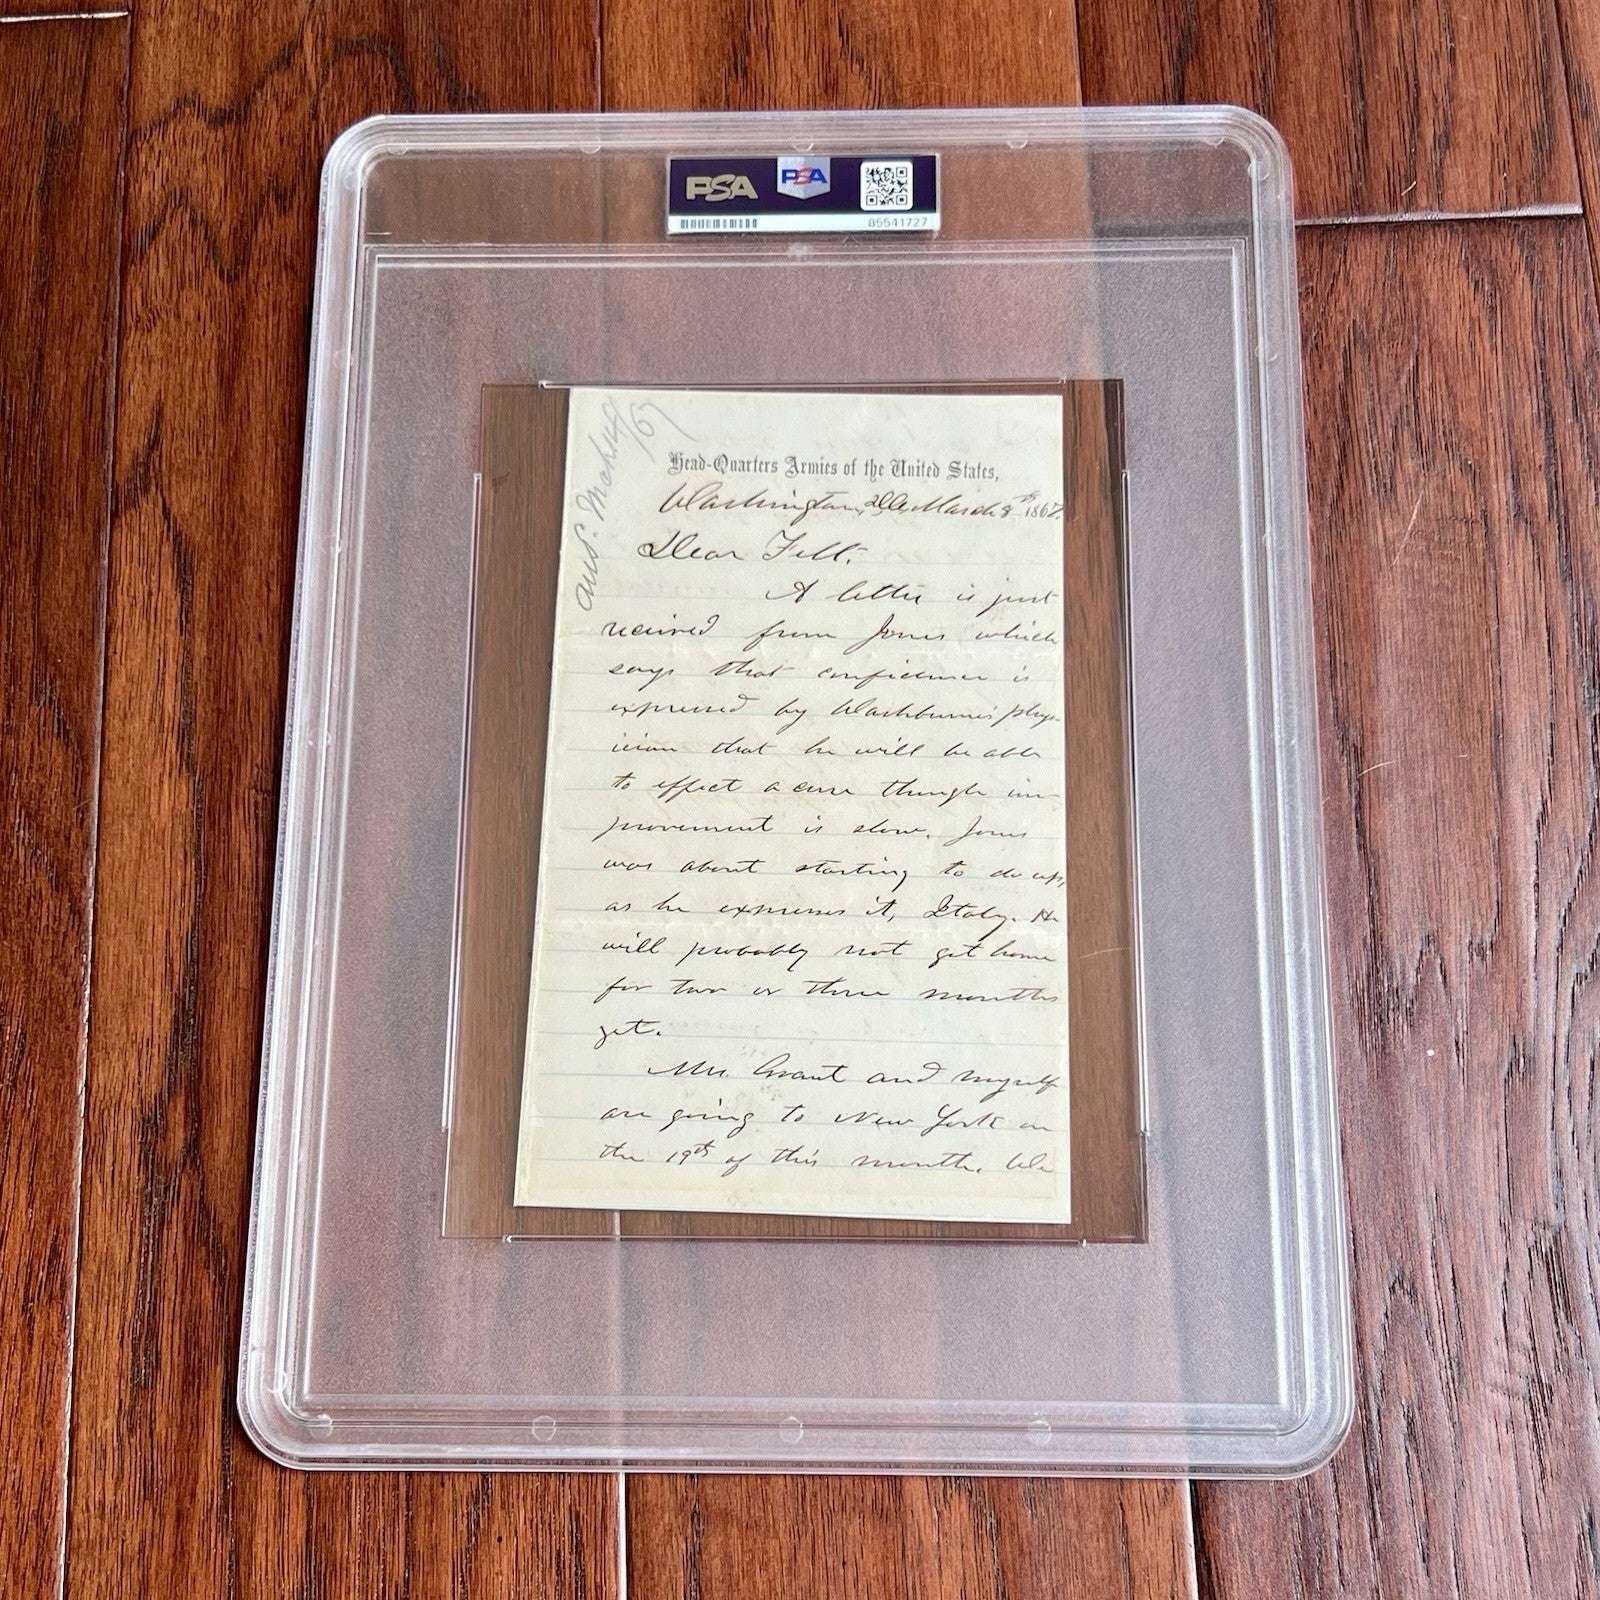 PSA
PSA
85541727
ans. March 14
/67
Head-Quarters Armies of the United States,
Washington, D.C. March 8th 1867.
Dear Felt;
A letter is just
received from Jones which
says that confidence is
expressed by Washburne's phys-
ician that he will be able
to effect a cure though im-
provement is slow. Jones
was about starting to do up,
as he expresses it, Italy. He
will probably not get home
for two or three months
yet.
Mrs. Grant and myself
are going to New York on
the 19th of this month. We